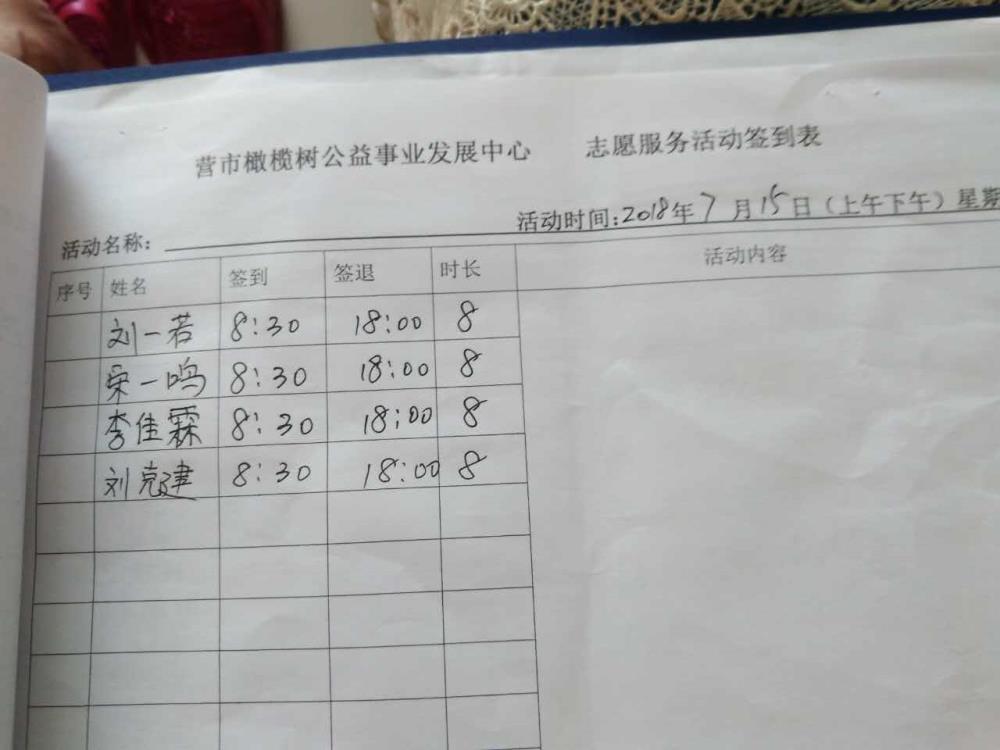 营市橄榄树公益事业发展中心 志愿服务活动签到表
活动名称： 活动时间:2018年7月15日（上午下午）星期
序号 姓名 签到 签退 时长 活动内容
刘一若 8:30 18:00 8
宋一鸣 8:30 18:00 8
李佳霖 8:30 18:00 8
刘克建 8:30 18:00 8